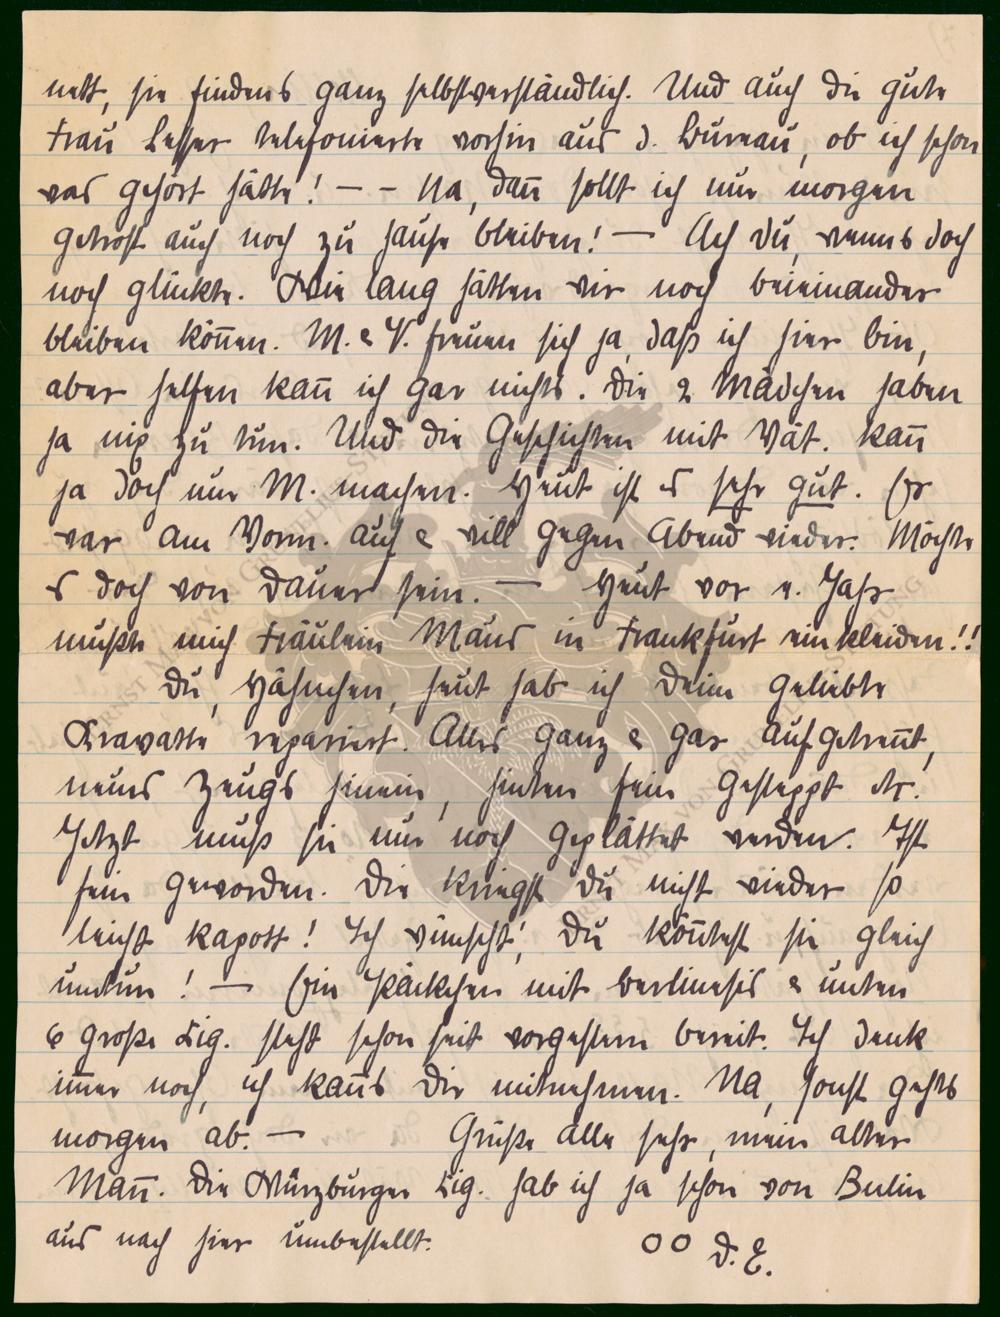 nett, sie findens ganz selbstverständlich. Und auch die gute
Frau Lesser telefonierte vorhin aus d. Bureau, ob ich schon
was gehört hätte! — – Na, dan̅ sollt ich nur morgen
getrost auch noch zu Hause bleiben! — Ach Du, wenns doch
noch glückte. Wie lang hätten wir noch beieinander
bleiben kön̅en. M. & V. freuen sich ja, daß ich hier bin,
aber helfen kan̅ ich gar nichts. Die 2 Mädchen haben
ja nix zu tun. Und die Geschichten mit Vat. kan̅
ja doch nur M. machen. Heut ist es sehr gut. Er
war am Vorm. auf & will gegen Abend wieder. Möchte
es doch von Dauer sein. — Heut vor e. Jahr
mußte mich Fräulein Maus in Frankfurt einkleiden!!
Du, Hähnchen, heut hab ich Deine geliebte
Kravatte repariert. Alles ganz & gar aufgetren̅t,
neues Zeugs hinein, hinten fein gesteppt etc.
Jetzt muß sie nur noch geplättet werden. Ist
fein geworden. Die kriegst Du nicht wieder so
leicht kapott! Ich wünscht', Du kön̅test sie gleich
umtun! — Ein Päckchen mit & unten
6 große Zig. steht schon seit vorgestern bereit. Ich denk
im̅er noch, ich kan̅s Dir mitnehmen. Na, sonst gehts
morgen ab. — Grüße alle sehr, mein alter
Man̅. Die Würzburger Zig. hab ich ja schon von Berlin
aus nach hier umbestellt. OO D. E.
ERNST MAX VON GRUNELIUS-STIFTUNG
ERNST MAX VON GRUNELIUS-STIFTUNG